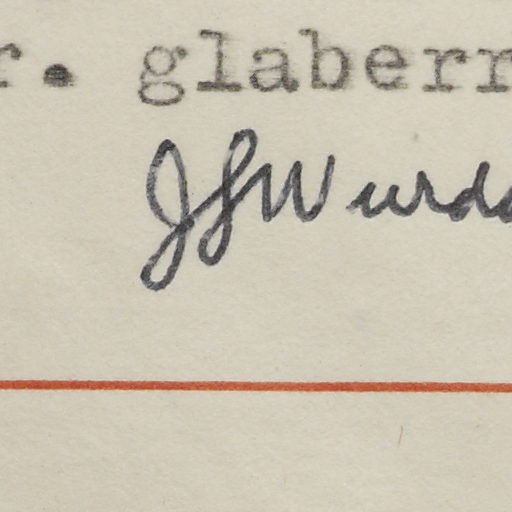 r. glaberr
JJWurda